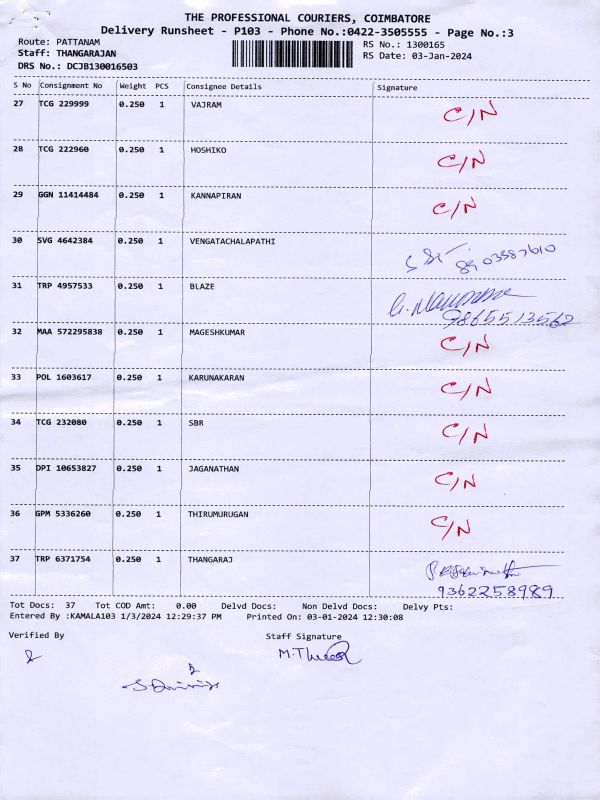 THE PROFESSIONAL COURIERS, COIMBATORE
Delivery Runsheet - P103 - Phone No.:0422-3505555 - Page No.:3
Route: PATTANAM
RS No.: 1300165
Staff: THANGARAJAN
RS Date: 03-Jan-2024
DRS No.: DCJB130016503
S No Consignment No Weight PCS Consignee Details Signature
27 TCG 229999 0.250 1 VAJRAM C/N
28 TCG 222960 0.250 1 HOSHIKO C/N
29 GGN 11414484 0.250 1 KANNAPIRAN C/N
30 SVG 4642384 0.250 1 VENGATACHALAPATHI
8903587610
31 TRP 4957533 0.250 1 BLAZE
9865513562
32 MAA 572295838 0.250 1 MAGESHKUMAR C/N
33 POL 1603617 0.250 1 KARUNAKARAN C/N
34 TCG 232080 0.250 1 SBR C/N
35 DPI 10653827 0.250 1 JAGANATHAN C/N
36 GPM 5336260 0.250 1 THIRUMURUGAN C/N
37 TRP 6371754 0.250 1 THANGARAJ
9362258989
Tot Docs: 37 Tot COD Amt: 0.00 Delvd Docs: Non Delvd Docs: Delvy Pts:
Entered By :KAMALA103 1/3/2024 12:29:37 PM Printed On: 03-01-2024 12:30:08
Verified By Staff Signature